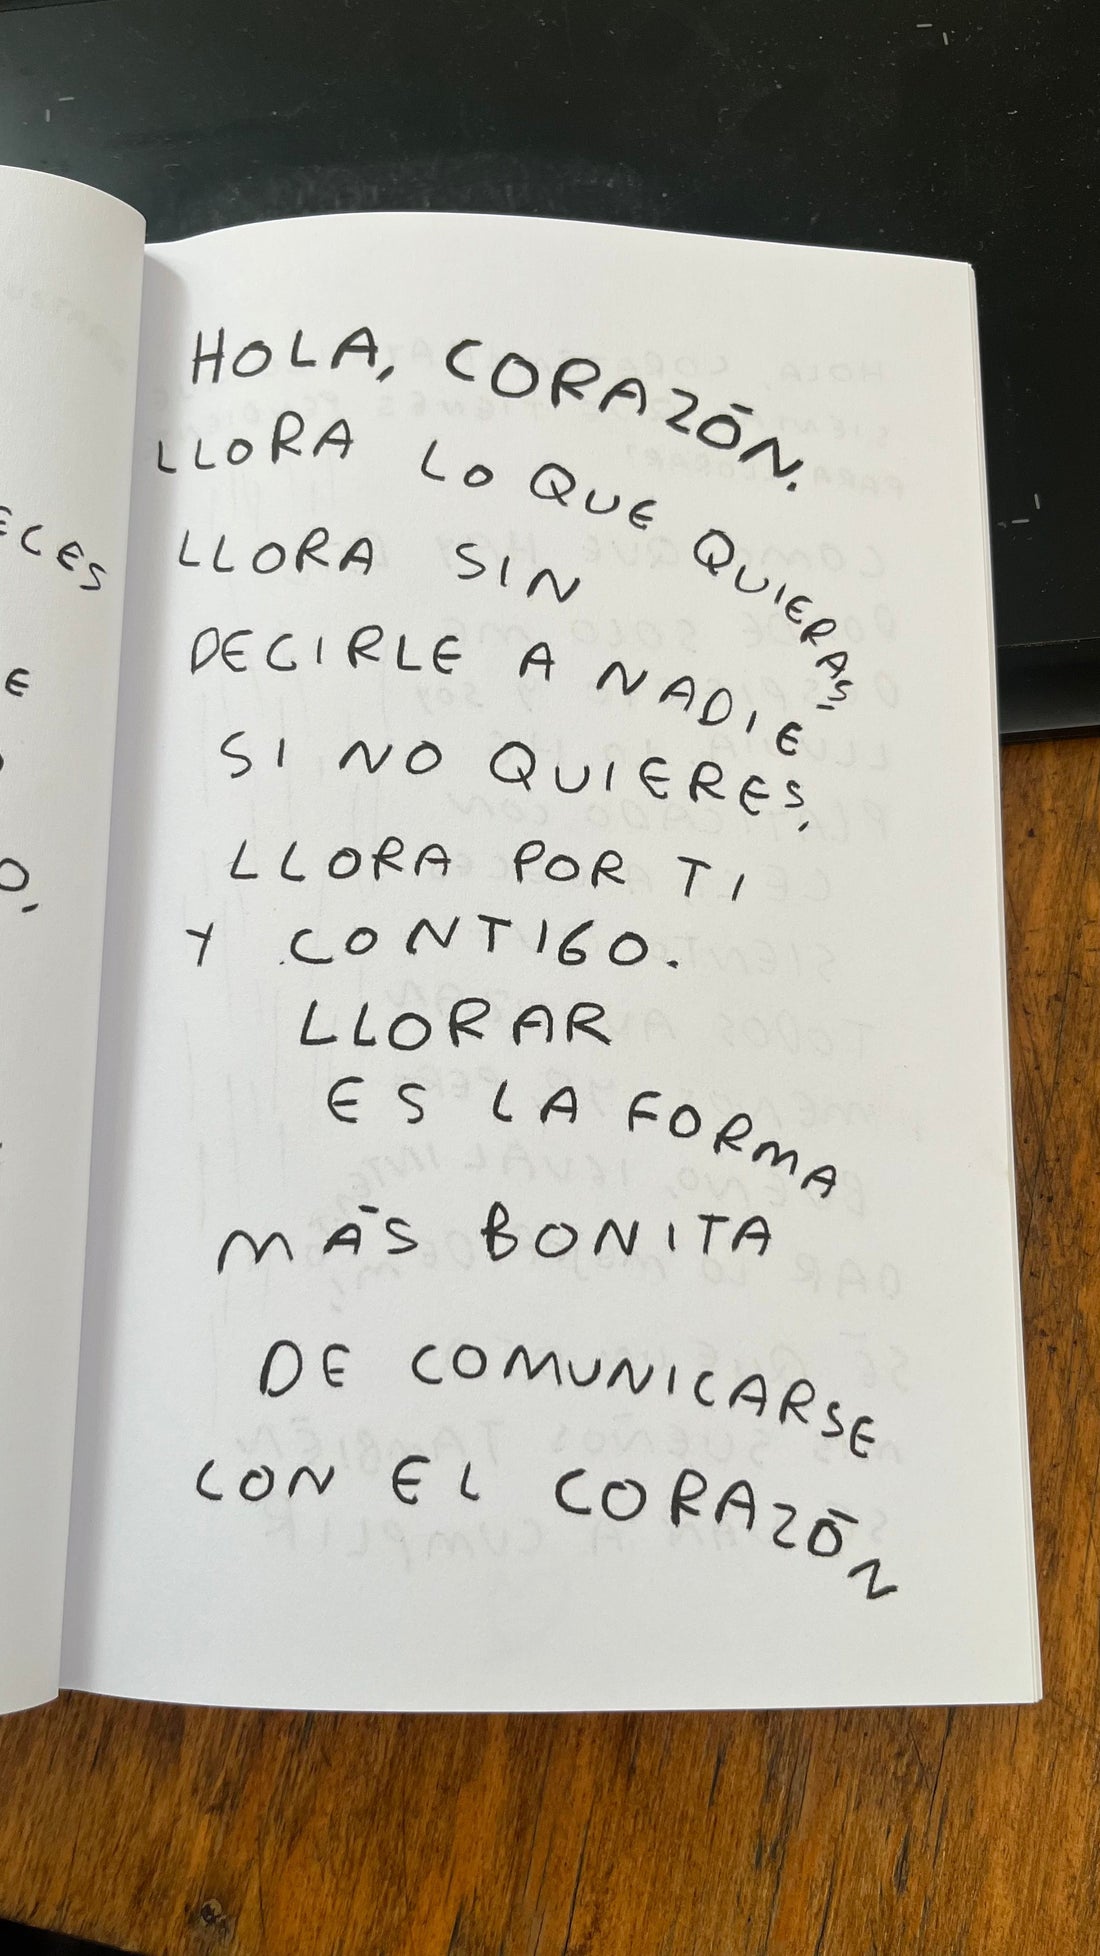 HOLA, CORAZÓN.
LLORA LO QUE QUIERAS
LLORA SIN
DECIRLE A NADIE
SI NO QUIERES.
LLORA POR TI
Y CONTIGO.
LLORAR
ES LA FORMA
MÁS BONITA
DE COMUNICARSE
CON EL CORAZÓN